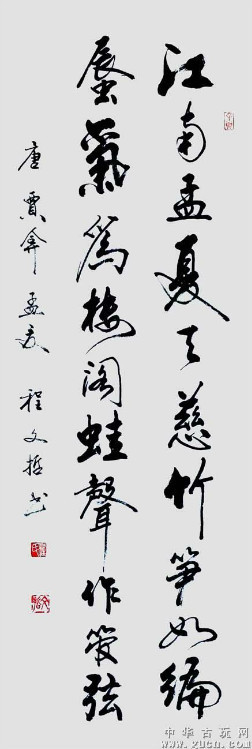 江南孟夏天慈竹笋如编
蜃气为楼阁蛙声作管弦
唐贾弇孟夏 程文哲书
中华古玩网
www.gucn.com